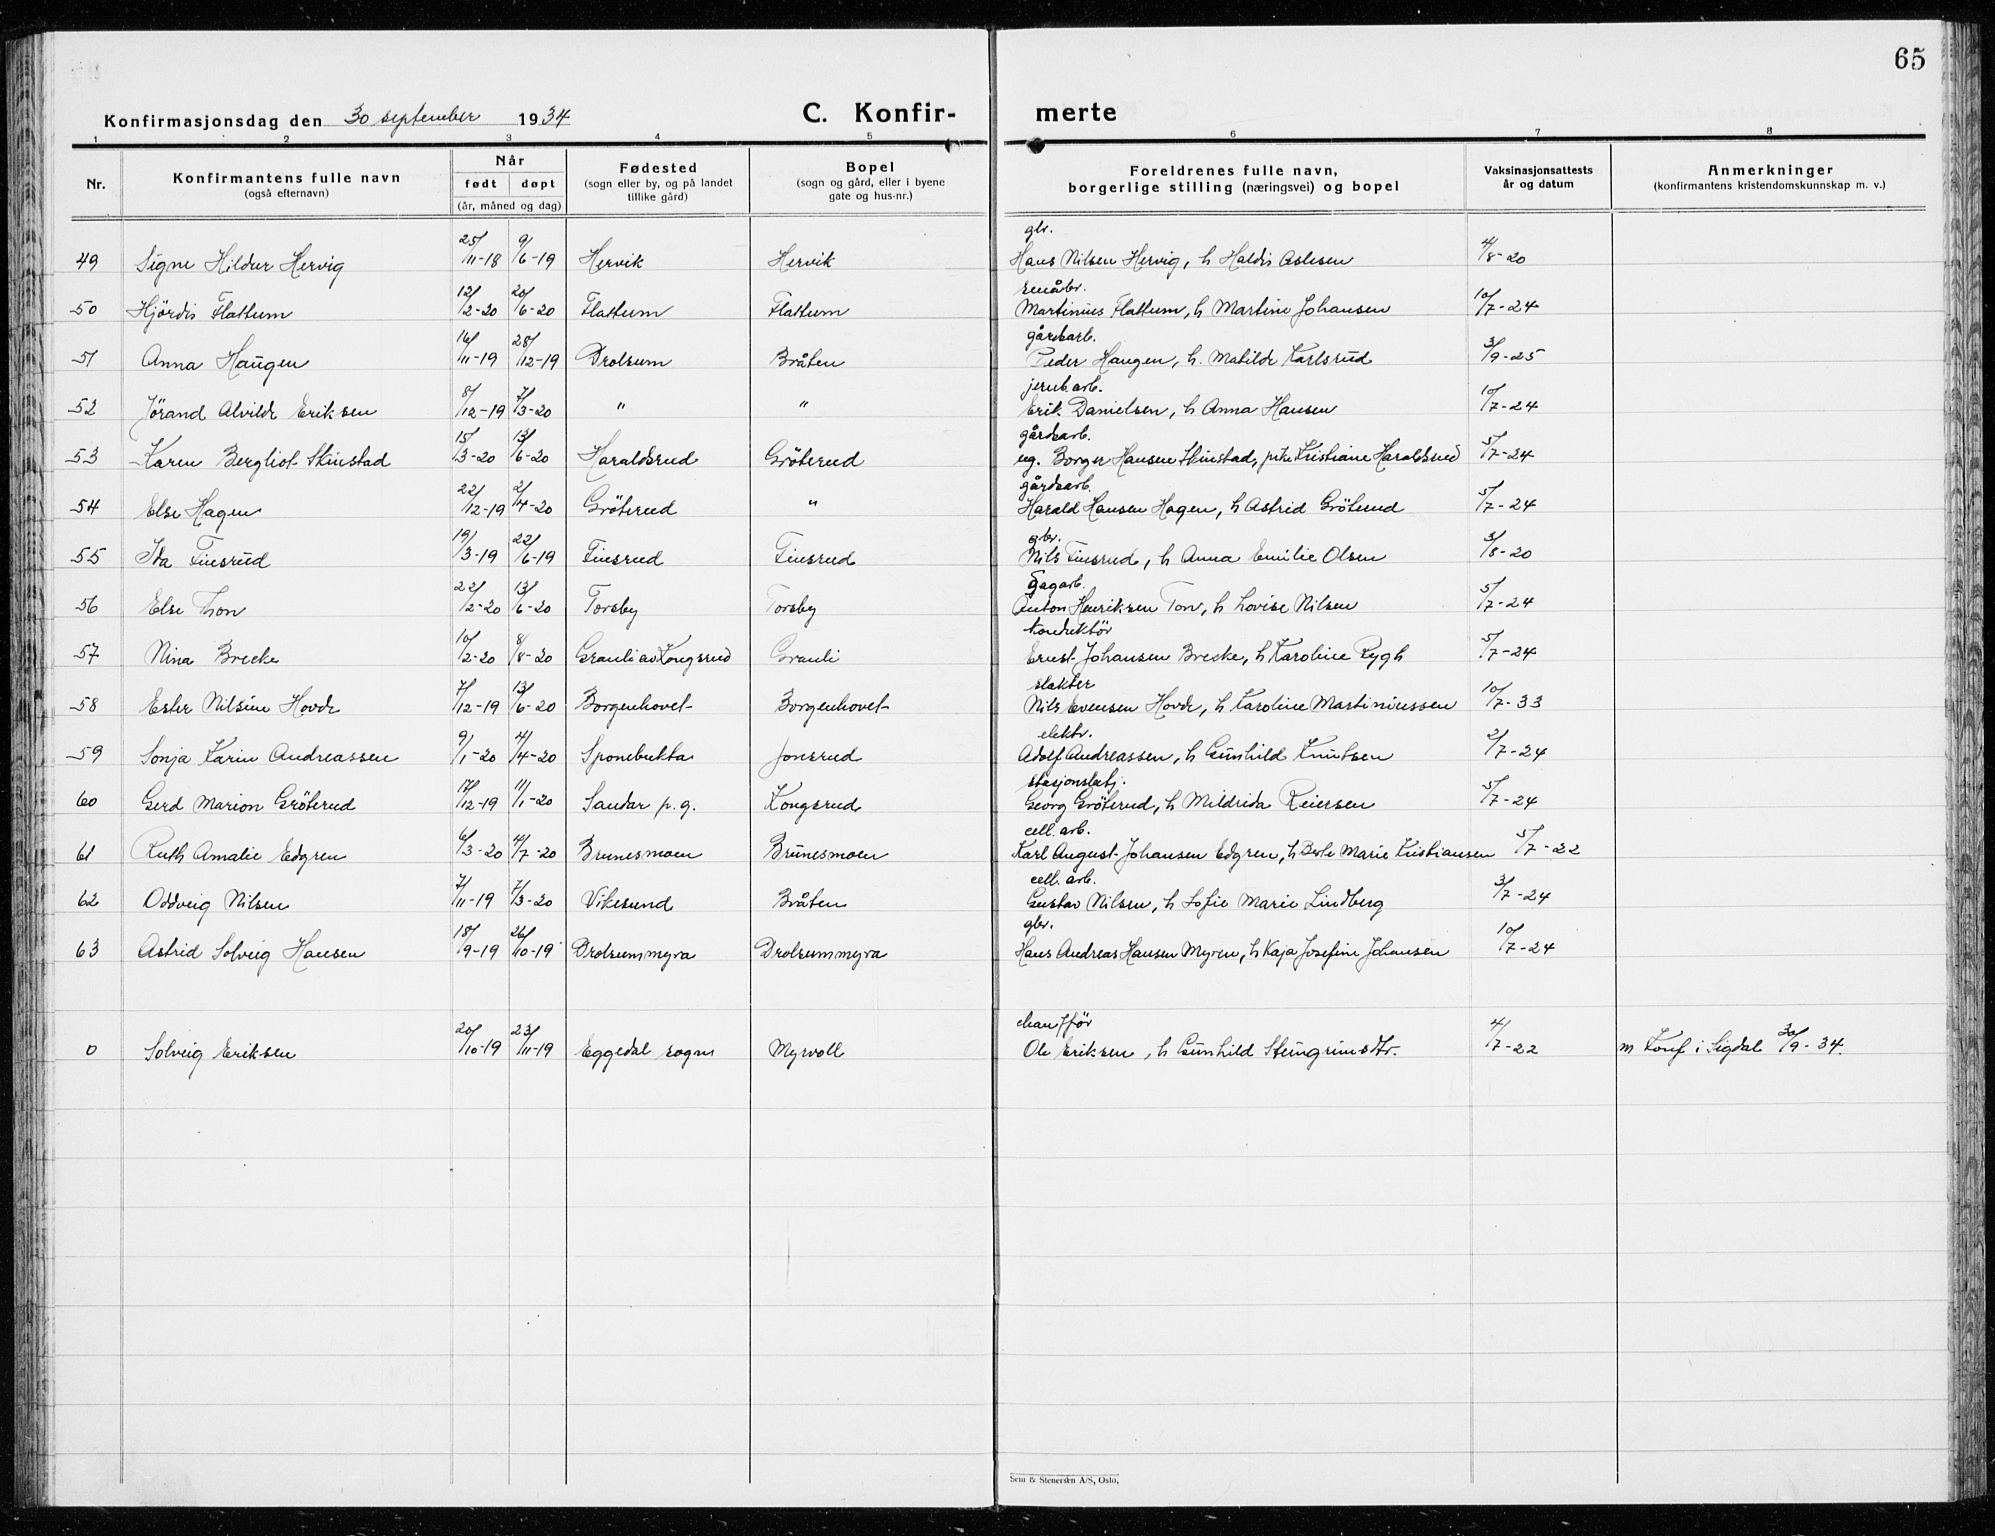 65
Konfirmasjonsdag den 30 september 1934 C. Konfir- merte
1 2 3 4 5 6 7 8
Nr. Konfirmantens fulle navn (også efternavn) Når født døpt (år, måned og dag) Fødested (sogn eller by, og på landet tillike gård) Bopel (sogn og gård, eller i byene gate og hus-nr.) Foreldrenes fulle navn, borgerlige stilling (næringsvei) og bopel Vaksinasjonsattests år og datum Anmerkninger (konfirmantens kristendomskunnskap m. v.)
gbr.
49 Signe Hildur Hervig 25/11-18 9/6-19 Hervik Hervik Hans Nilsen Hervig, h Haldis Aslesen 4/8-20
småbr.
50 Hjördis Flattum 12/2-20 20/6-20 Flattum Flattum Martinius Flattum, h Martine Johansen 10/7-24
gårdsarb.
51 Anna Haugen 16/11-19 28/12-19 Drolsum Bråten Peder Haugen, h. Matilde Karlsrud 3/9-25
jernb.arb.
52 Jörand Alvilde Eriksen 8/12-19 7/3-20 " " Erik Danielsen, h Anna Hansen 10/7-24
gårdsarb.
53 Karen Bergliot Skinstad 15/3-20 13/6-20 Haraldsrud Gröterud ug. Borger Hansen Skinstad, pike Kristiane Haraldsrud 5/7-24
gårdsarb.
54 Else Hagen 22/12-19 2/4-20 Gröterud " Harald Hansen Hagen, h Astrid Gröterud 5/7-24
gbr.
55 Ida Finsrud 19/3-19 22/6-19 Finsrud Finsrud Nils Finsrud, h Anna Emilie Olsen 3/8-20
Sagarb.
56 Else Thon 22/2-20 13/6-20 Torsby Torsby Anton Henriksen Ton, h Lovise Nilsen 5/7-24
konduktör
57 Nina Brecke 10/2-20 8/8-20 Granli av Kongsrud Granli Ernst Johansen Brecke, h Karoline Rygh 5/7-24
slakter
58 Ester Nilsine Hovde 7/12-19 13/6-20 Borgenhovet Borgenhovet Nils Evensen Hovde, h Karoline Martiniussen 10/7-33
elektr.
59 Sonja Karin Andreassen 9/1-20 4/4-20 Sponebukta Jonsrud Adolf Andreassen, h Gunhild Knutsen 2/7-24
stasjonsbetj.
60 Gerd Marion Gröterud 17/12-19 11/1-20 Sandar p.g. Kongsrud Georg Gröterud, h Mildrida Reiersen 5/7-24
cell. arb.
61 Ruth Amalie Edgren 6/3-20 4/7-20 Brunesmoen Brunesmoen Karl August Johansen Edgren, h Berte Marie Kristiansen 5/7-22
cell. arb.
62 Oddveig Nilsen 7/11-19 7/3-20 Vikesund Bråten Gustav Nilsen, h Sofie Marie Lindberg 3/7-24
gbr.
63 Astrid Solveig Hansen 18/9-19 26/10-19 Drolsummyra Drolsummyra Hans Andreas Hansen Myren, h Kaja Josefine Johansen 10/7-24
chaufför
0 Solveig Eriksen 20/10-19 23/11-19 Eggedal sogn Myrvoll Ole Eriksen, h Gunhild Steingrimsdtr. 4/7-22 m Konf i Sigdal 30/9-34.
Sem & Stenersen A/S, Oslo.